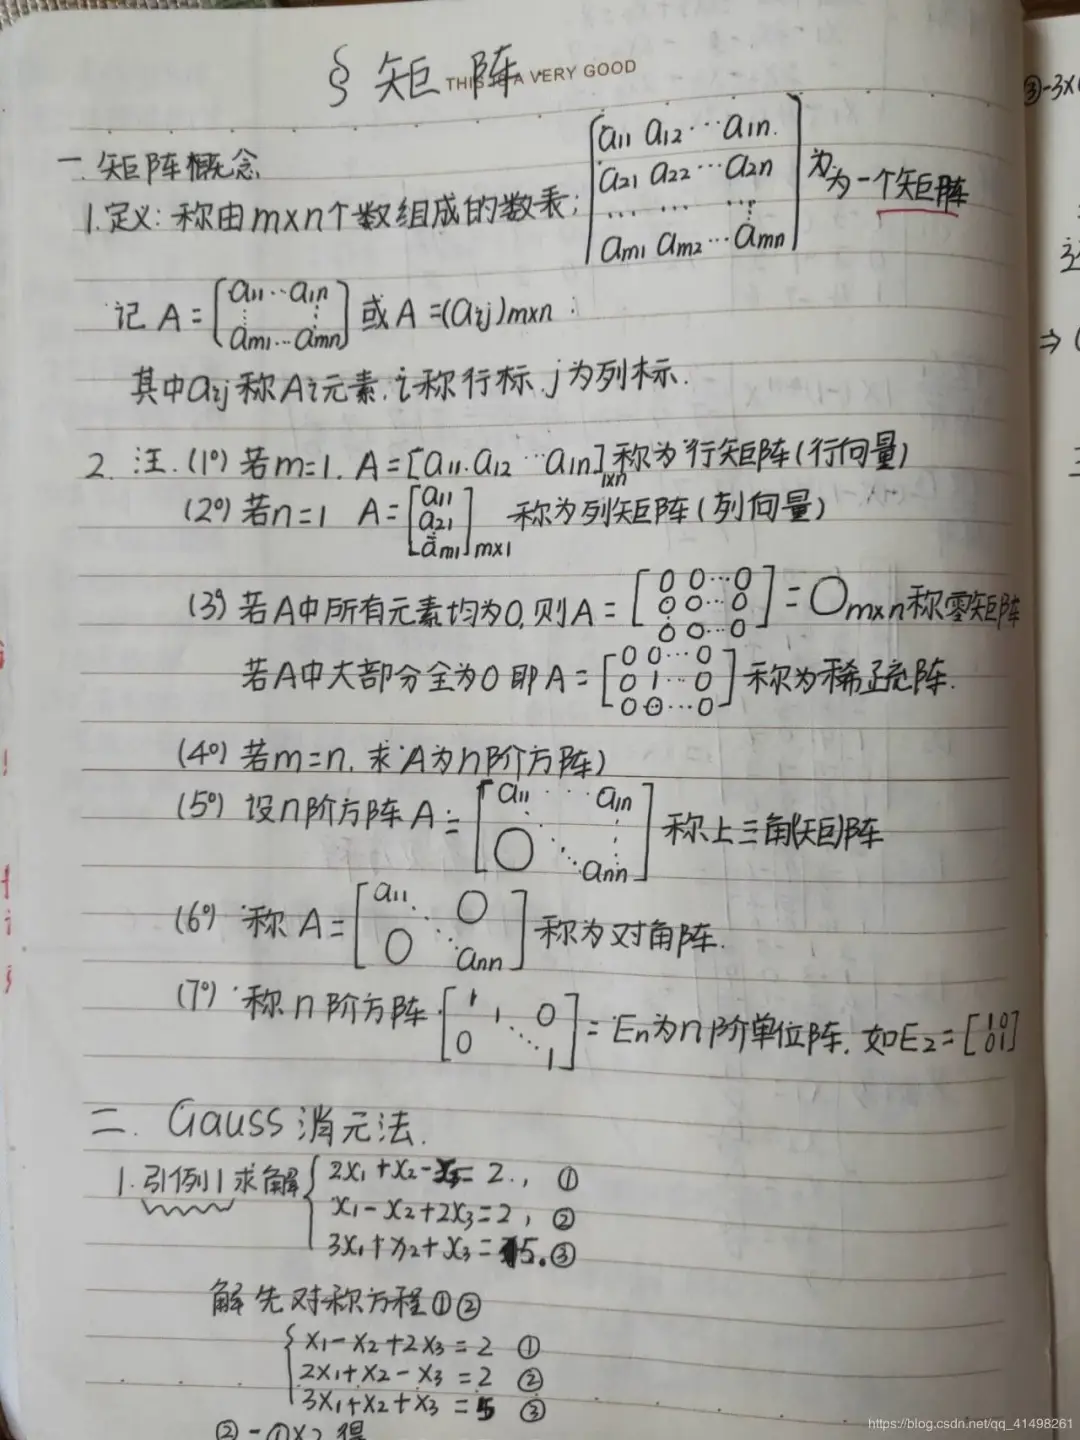 § 矩阵
THIS IS A VERY GOOD
一. 矩阵概念
1.定义: 称由m×n个数组成的数表; [a11 a12 ··· a1n. a21 a22 ··· a2n ... ... ... am1 am2 ··· amn] 为为一个矩阵
记 A = [a11 ·· a1n ⋮ ⋮ am1 ... amn] 或 A =(aij)m×n
其中aij 称A i元素. i称行标. j为列标.
2. 注. (1°) 若m=1. A=[a11. a12 ··· a1n]1×n 称为行矩阵(行向量)
(2°) 若n=1 A=[a11 a21 ⋮ am1]m×1 称为列矩阵(列向量)
(3°) 若A中所有元素均为0, 则A = [0 0 ··· 0 0 0 ··· 0 0 0 ··· 0] = Om×n称零矩阵
若A中大部分全为0 即 A = [0 0 ··· 0 0 1 ·· 0 0 0 ··· 0] 称为稀疏阵.
(4°) 若m=n. 求A为n阶方阵)
(5°) 设n阶方阵 A = [a11 ··· a1n O ⋱ ⋮ ann] 称上三角(矩)阵
(6°) 称 A = [a11 ⋱ O O ann] 称为对角阵.
(7°) 称 n 阶方阵 [1 1 0 0 ⋱ 1] = En为n阶单位阵. 如E2=[1 0 0 1]
二. Gauss 消元法.
1. 引例1 求解 { 2x1+x2-x3=2., ①
x1-x2+2x3=2, ②
3x1+x2+x3=5. ③
解 先对称方程①②
{ x1-x2+2x3=2 ①
2x1+x2-x3=2 ②
3x1+x2+x3=5 ③
②-①×2 得
③-3×
⇒ (
https://blog.csdn.net/qq_41498261